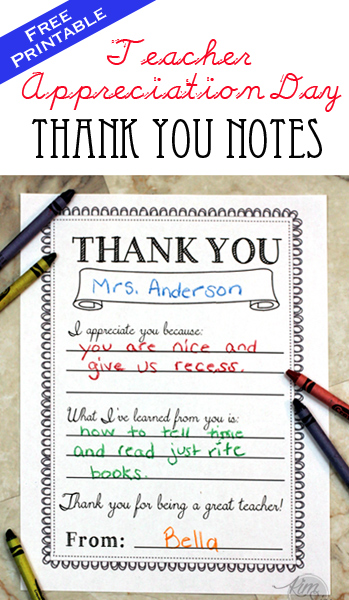 FREE
PRINTABLE
Teacher
Appreciation Day
THANK YOU NOTES
THANK YOU
Mrs. Anderson
I appreciate you because:
you are nice and
give us recess.
What I've learned from you is:
how to tell time
and read just rite
books.
Thank you for being a great teacher!
From: Bella
Kim